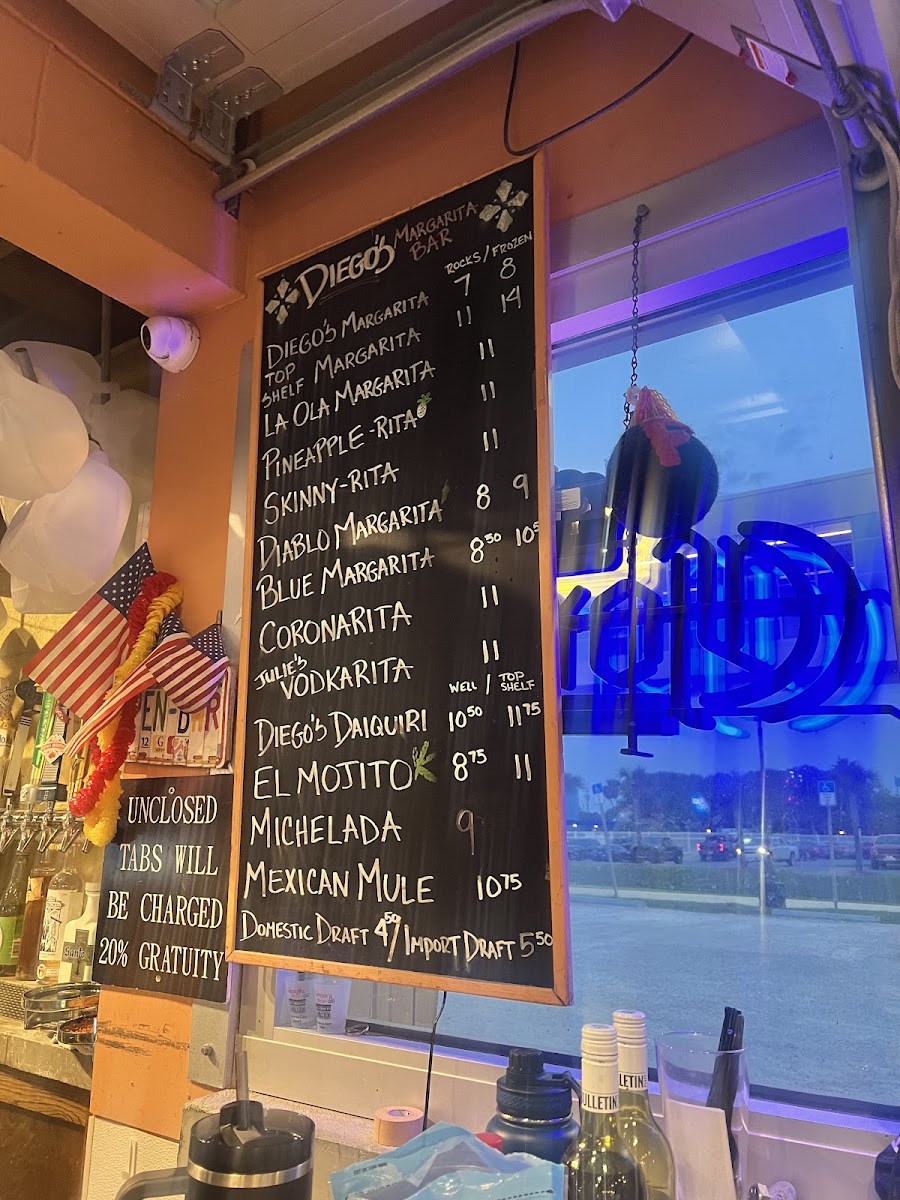 DIEGO'S MARGARITA BAR
ROCKS / FROZEN
DIEGO'S MARGARITA 7 8
TOP SHELF MARGARITA 11 14
LA OLA MARGARITA 11
PINEAPPLE-RITA 11
SKINNY-RITA 11
DIABLO MARGARITA 8 9
BLUE MARGARITA 8⁵⁰ 10⁵
CORONARITA 11
JULIE'S VODKARITA 11
WELL / TOP SHELF
DIEGO'S DAIQUIRI 10⁵⁰ 11⁷⁵
EL MOJITO 8⁷⁵ 11
MICHELADA 9
MEXICAN MULE 10⁷⁵
DOMESTIC DRAFT 4⁵⁰/ IMPORT DRAFT 5⁵⁰
EN-BAR
12 G
UNCLOSED
TABS WILL
BE CHARGED
20% GRATUITY
ULLETIN
LETIN